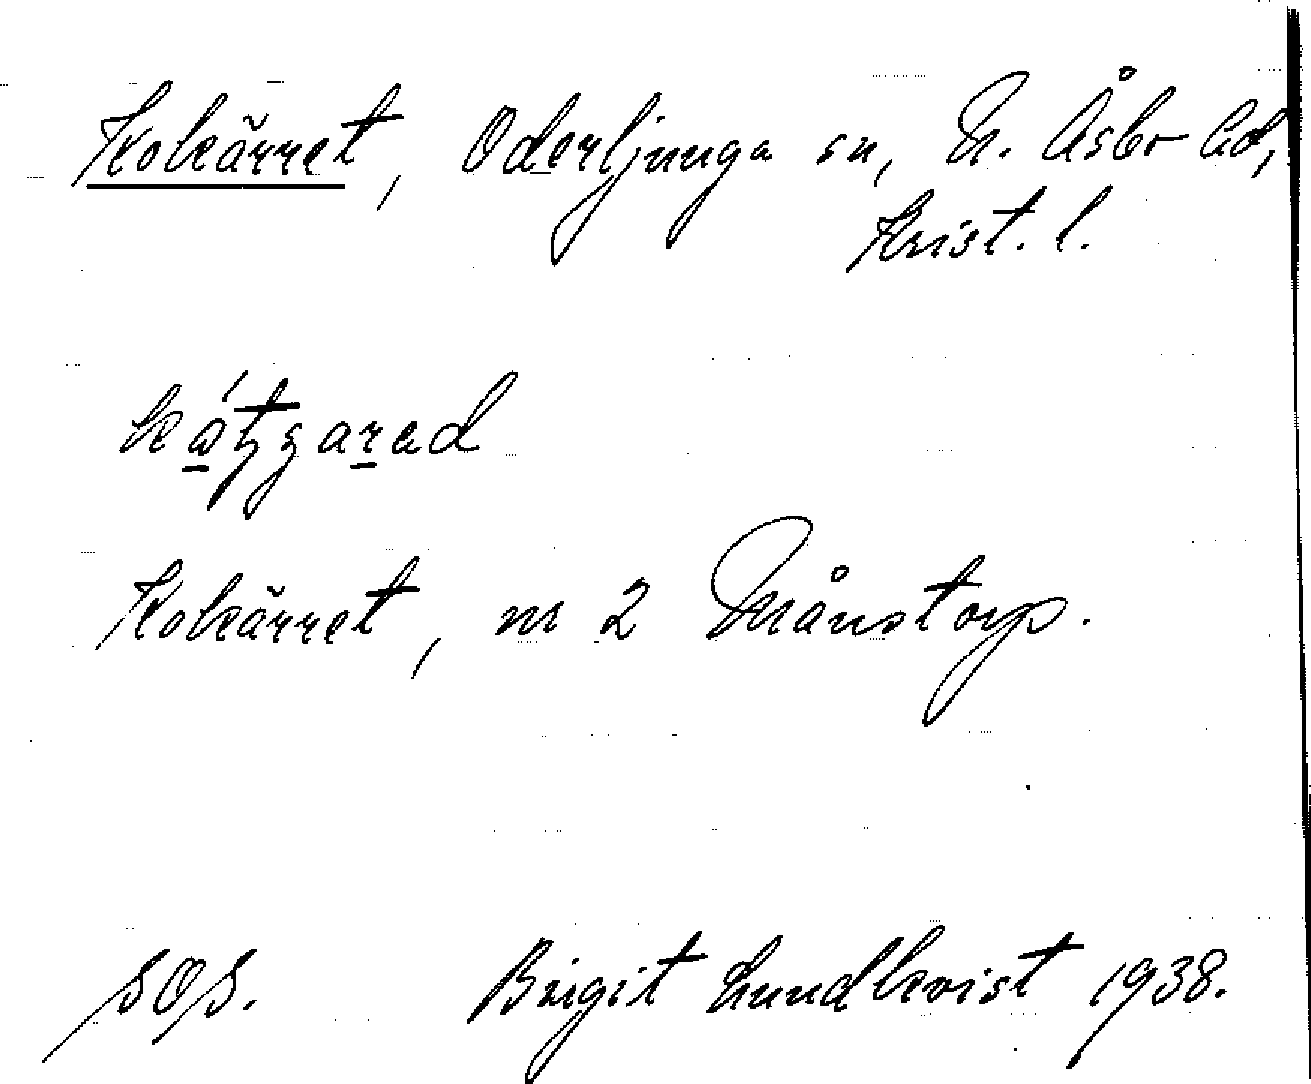 Kokärret, Oderljunga sn, N. Åsbo hd,
Krist. l.
Kokärret, nr 2 Månstorp.
SOS. Birgit Lundkvist 1938.